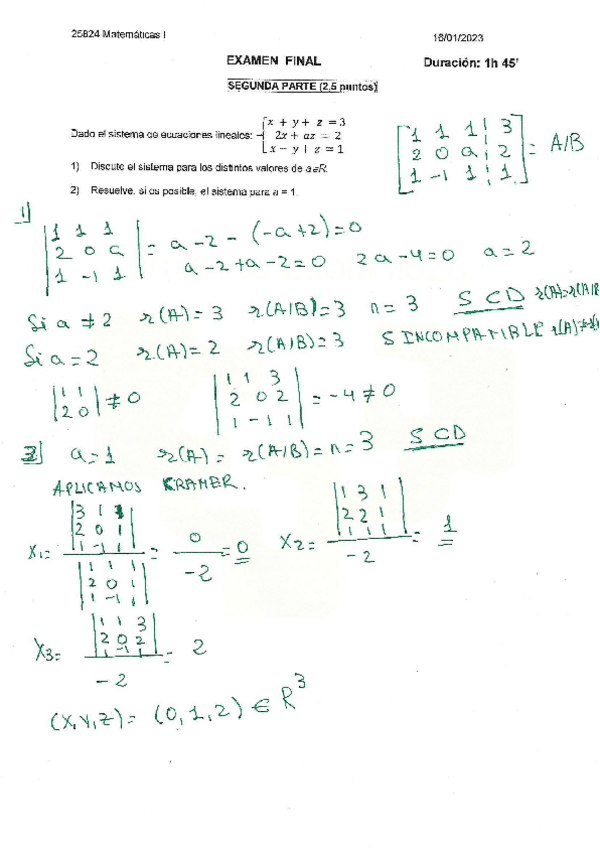 25824 Matemáticas I
16/01/2023
EXAMEN FINAL
Duración: 1h 45'
SEGUNDA PARTE (2,5 puntos)
Dado el sistema de ecuaciones lineales: { x + y + z = 3
2x + az = 2
x − y + z = 1
1) Discute el sistema para los distintos valores de a∈R.
2) Resuelve, si es posible, el sistema para a = 1.
[1 1 1 | 3
2 0 a | 2 = A/B
1 -1 1 | 1]
1)
|1 1 1|
|2 0 a| = a-2-(-a+2)=0
|1 -1 1| a-2+a-2=0 2a-4=0 a=2
Si a ≠ 2 r(A)=3 r(A/B)=3 n=3 S CD r(A)=r(A/B
Si a=2 r(A)=2 r(A/B)=3 S INCOMPATIBLE r(A)≠
|1 1|
|2 0| ≠0
|1 1 3|
|2 0 2| = -4 ≠0
|1 -1 1|
2) a=1 r(A)= r(A/B)=n=3 S CD
APLICAMOS KRAMER.
X1= |3 1 1|
|2 0 1|
|1 -1 1|
|1 1 1|
|2 0 1|
|1 -1 1|
= 0 / -2 = 0
X2= |1 3 1|
|2 2 1|
|1 1 1|
/ -2 = 1
X3= |1 1 3|
|2 0 2|
|1 -1 1|
/ -2 = 2
(X,Y,Z)= (0,1,2) ∈ R³